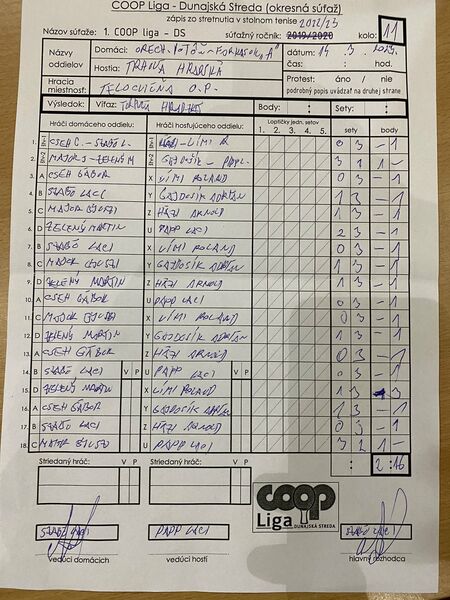 COOP Liga - Dunajská Streda (okresná súťaž)
zápis zo stretnutia v stolnom tenise 2022/23
Názov súťaže: 1. COOP liga - DS súťažný ročník: 2019/2020 kolo: 11
Názvy oddielov Domáci: ORECH. POTÔŇ - "A" dátum: 3. 2023
Hostia: TRHOVÁ HRADSKÁ Protest: áno / nie
Hracia miestnosť: TELOCVIČŇA O.P. podrobný popis uvádzať na druhej strane
Výsledok: Víťaz: TRHOVÁ HRADSKÁ Body: : Sety: :
Hráči domáceho oddielu: Hráči hosťujúceho oddielu: Loptičky jedn. setov sety body
1. 2. 3. 4. 5.
1. CSEH G. - SZABÓ L. LÍMI R 0 3 - 1
2. MAJOR J - ZELENÝ M GAJDOSÍK - PAPP L. 3 2 1 -
3. A CSEH GÁBOR X LÍMI ROLAND 0 3 - 1
4. B SZABÓ LACI Y GAJDOSÍK ADRIÁN 1 3 - 1
5. C MAJOR Z HÁZI ARNOLD 1 3 - 1
6. D ZELENÝ MARTIN U PAPP LACI 2 3 - 1
7. B SZABÓ LACI X LÍMI ROLAND 0 3 - 1
8. C MAJOR Y GAJDOSÍK ADRIÁN 1 3 - 1
9. D ZELENÝ MARTIN Z HÁZI ARNOLD 1 3 - 1
10. A CSEH GÁBOR U PAPP LACI 0 3 - 1
11. C MAJOR X LÍMI ROLAND 0 3 - 1
12. D ZELENÝ MARTIN Y GAJDOSÍK ADRIÁN 1 3 - 1
13. A CSEH GÁBOR Z HÁZI ARNOLD 0 3 - 1
14. B SZABÓ LACI V P U PAPP LACI V P 0 3 - 1
15. D ZELENÝ MARTIN X LÍMI ROLAND 1 3
16. A CSEH GÁBOR Y GAJDOSÍK ADRIÁN 1 3 - 1
17. B SZABÓ LACI Z HÁZI ARNOLD 0 3 - 1
18. C MAJOR U PAPP LACI 3 2 1 -
Striedaný hráč: V P Striedaný hráč: V P : 2 : 16
coop
Liga DUNAJSKÁ STREDA
SZABÓ LACI PAPP LACI SZABÓ LACI
vedúci domácich vedúci hostí hlavný rozhodca